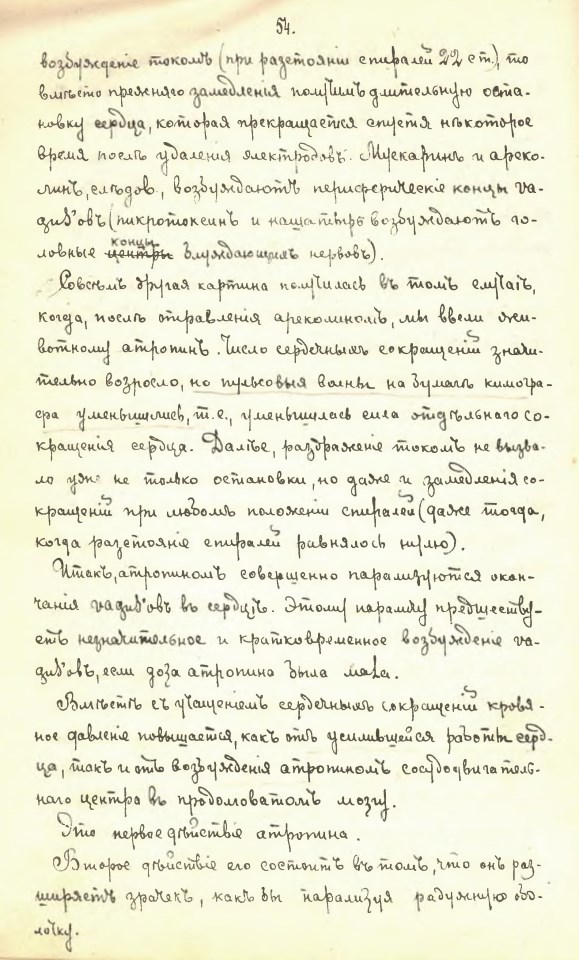 54.
возбужденіе токомъ (при разстояніи спиралей 22 ст.), то
вмѣсто прежняго замедленія получимъ длительную оста-
новку сердца, которая прекращается спустя нѣкоторое
время послѣ удаленія электродовъ. Мускаринъ и ареко-
линъ, слѣдов., возбуждаютъ периферическіе концы va-
gus'овъ (пикротоксинъ и нашатырь возбуждаютъ го-
концы
ловные центры блуждающихъ нервовъ).
Совсѣмъ другая картина получилась въ томъ случаѣ,
когда, послѣ отравленія ареколиномъ, мы ввели жи-
вотному атропинъ. Число сердечныхъ сокращеній значи-
тельно возросло, но пульсовыя волны на бумагѣ кимогра-
фа уменьшились, т.е., уменьшилась сила отдѣльнаго со-
кращенія сердца. Далѣе, раздраженіе токомъ не вызва-
ло уже не только остановки, но даже и замедленія со-
кращеній при любомъ положеніи спиралей (даже тогда,
когда разстояніе спиралей равнялось нулю).
Итакъ, атропиномъ совершенно парализуются окон-
чанія vagus'овъ въ сердцѣ. Этому параличу предшеству-
етъ незначительное и кратковременное возбужденіе va-
gus'овъ, если доза атропина была мала.
Вмѣстѣ съ учащеніемъ сердечныхъ сокращеній кровя-
ное давленіе повышается, какъ отъ усилившейся работы серд-
ца, такъ и отъ возбужденія атропиномъ сосудодвигатель-
наго центра въ продолговатомъ мозгу.
Это первое дѣйствіе атропина.
Второе дѣйствіе его состоитъ въ томъ, что онъ раз-
ширяетъ зрачекъ, какъ бы парализуя радужную обо-
лочку.